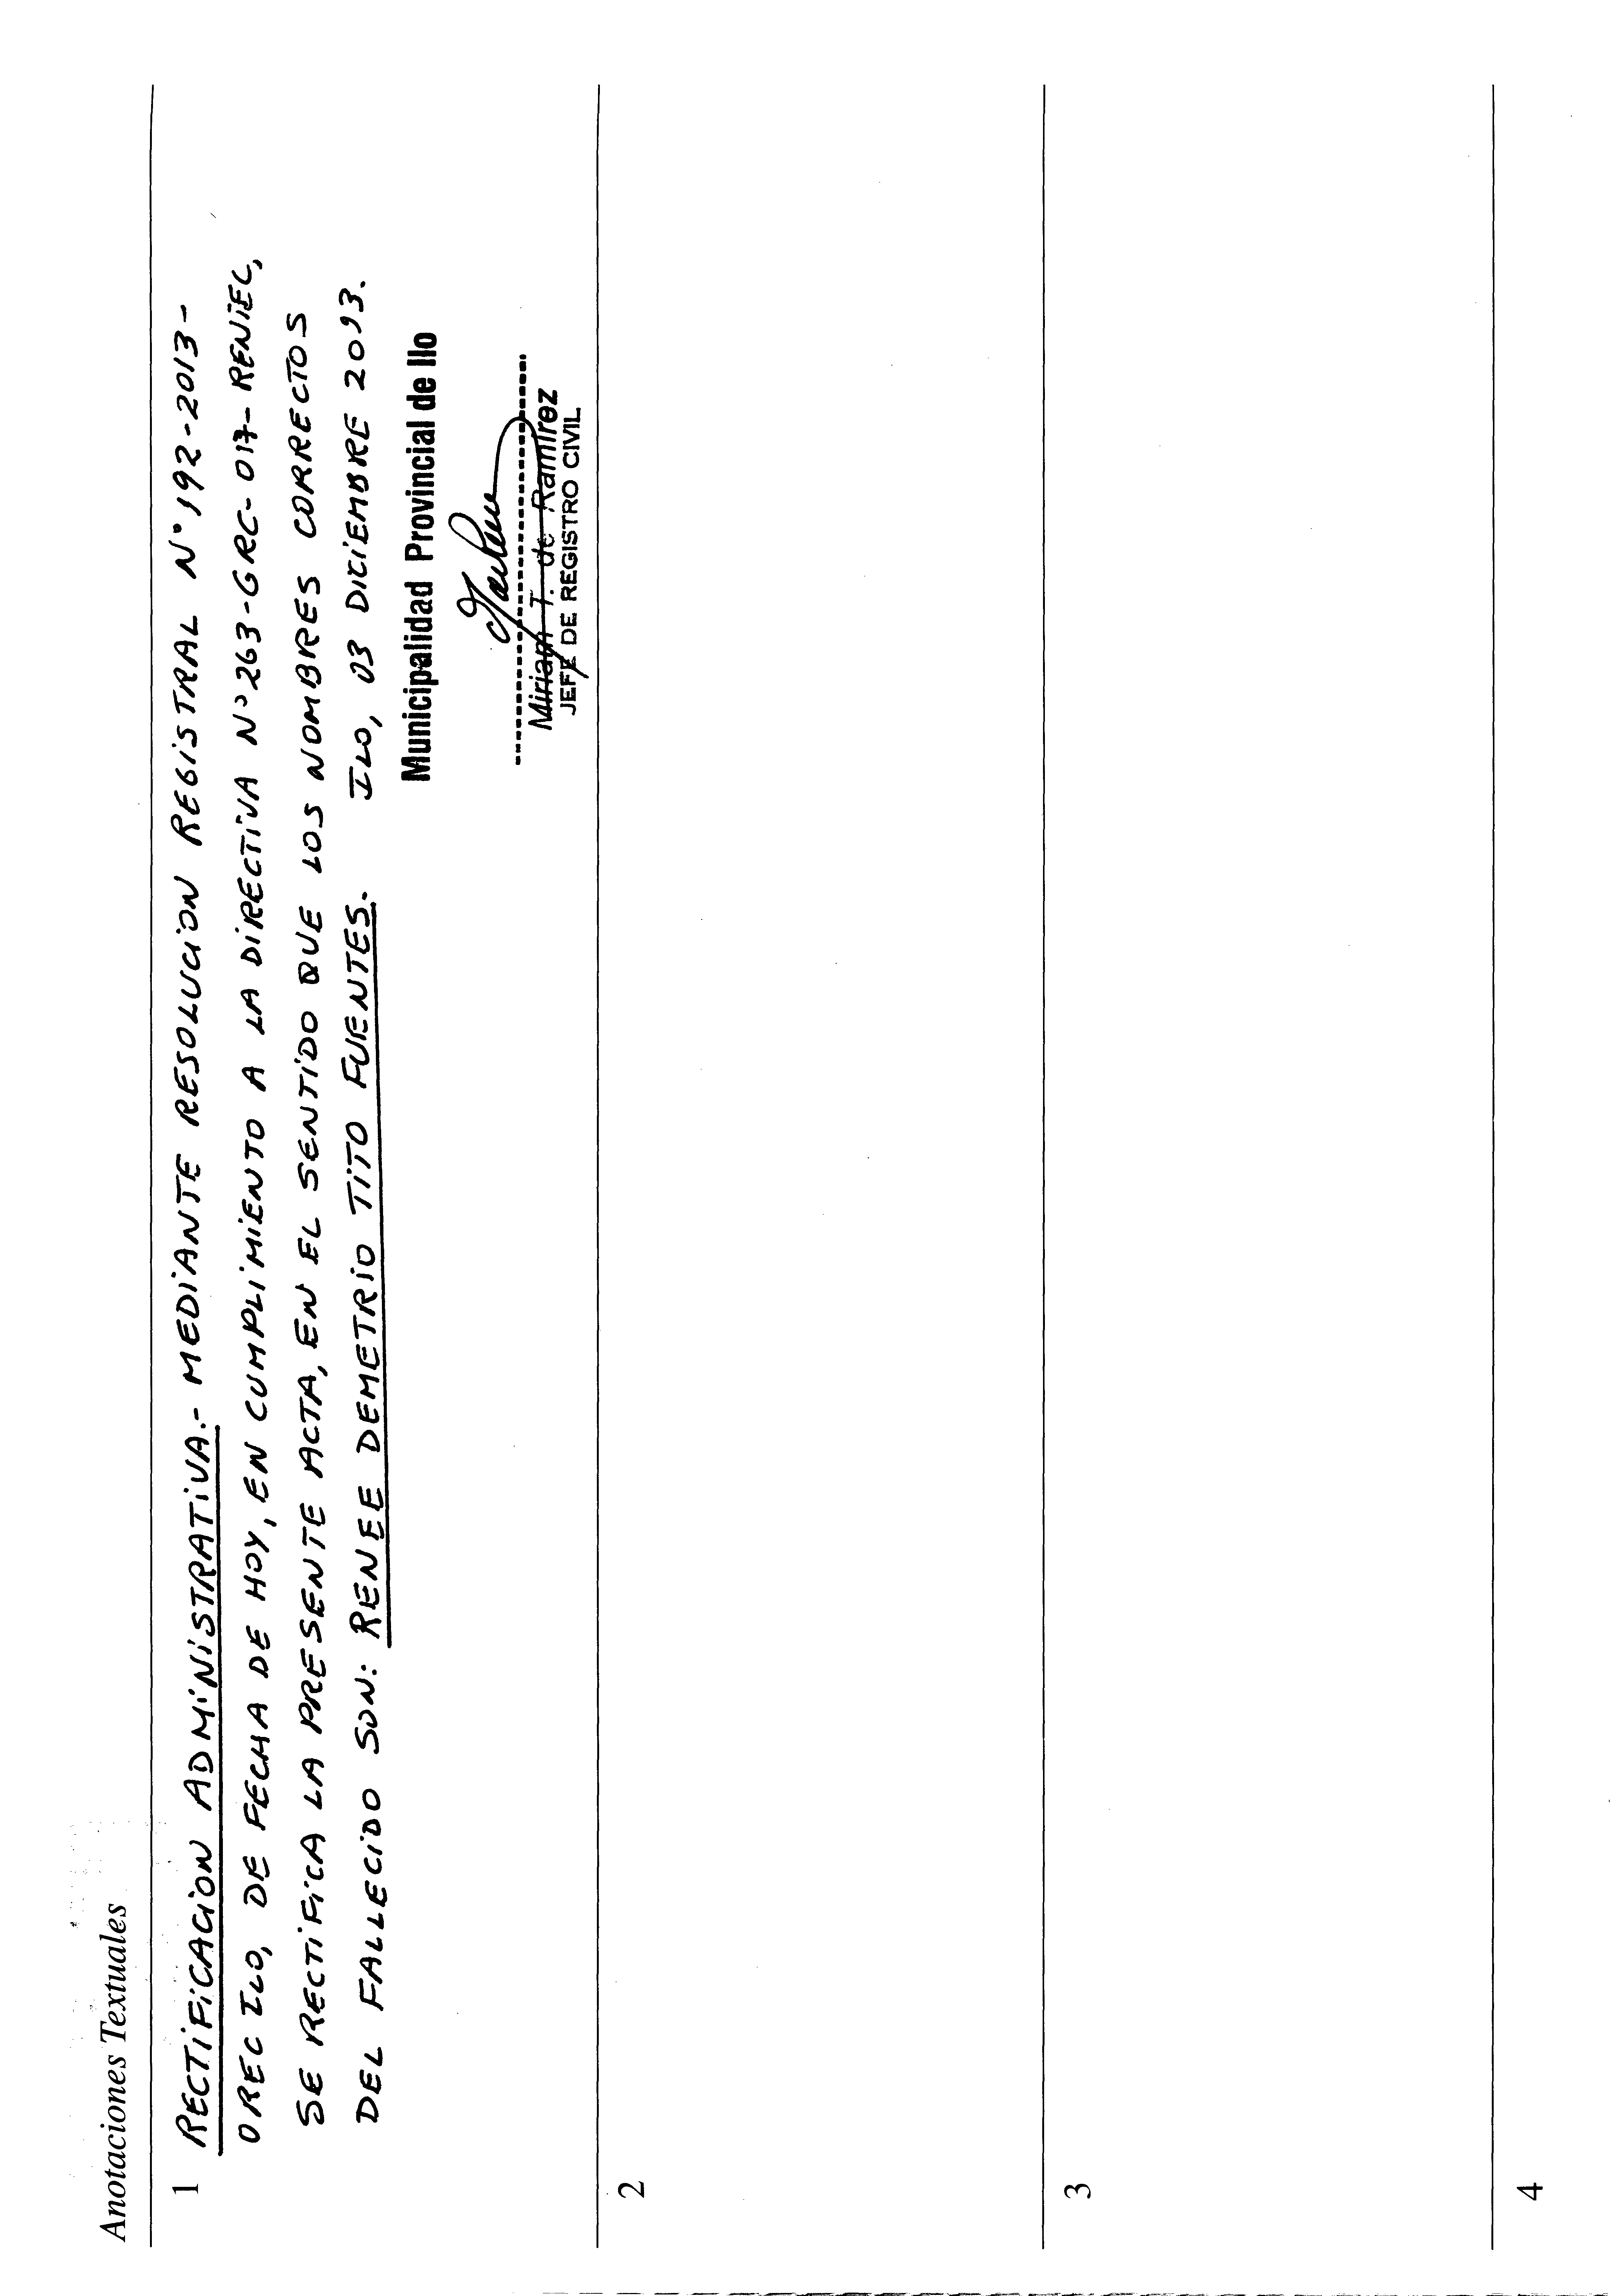 Anotaciones Textuales
1 RECTIFICACION ADMINISTRATIVA.- MEDIANTE RESOLUCION REGISTRAL N° 192-2013-
OREC ILO, DE FECHA DE HOY, EN CUMPLIMIENTO A LA DIRECTIVA N° 263-GRC-017-RENIEC,
SE RECTIFICA LA PRESENTE ACTA, EN EL SENTIDO QUE LOS NOMBRES CORRECTOS
DEL FALLECIDO SON: RENEE DEMETRIO TITO FUENTES. ILO, 03 DICIEMBRE 2013.
Municipalidad Provincial de Ilo
Miriam T. de Ramirez
JEFE DE REGISTRO CIVIL
2
3
4